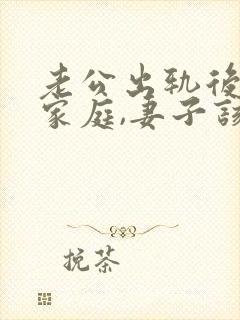 老公出轨後
家庭,妻子該
挽茶